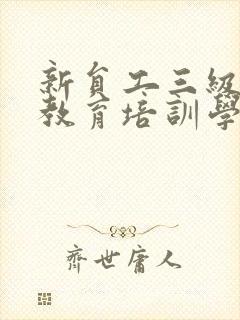 新員工三級
教育培訓學
齊世庸人